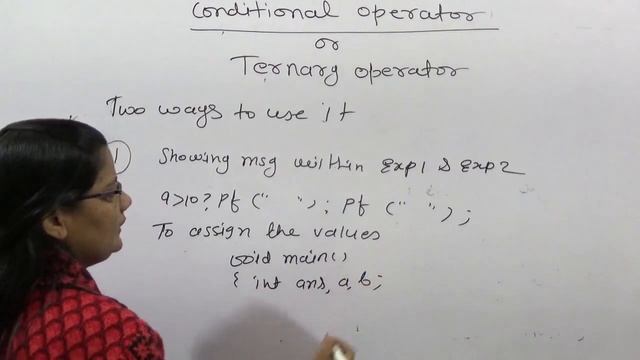 Conditional operator
or
Ternary operator
Two ways to use it
1) Showing msg within Exp1 & Exp2
a>10? Pf (" "); Pf (" ");
To assign the values
void main()
{ int ans, a, b;